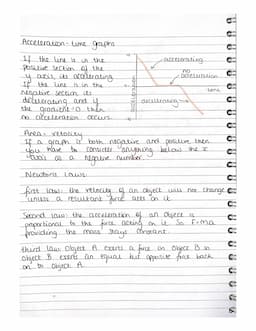 Acceleration - time graphs
If the line is in the
positive section of the
y axis, its accelerating
If the line is in the
negative section, its
decelerating and if
the gradient = 0 then
no acceleration occurs.
acceleration
accelerating
no
acceleration
time
decelerating
Area = velocity
If a graph is both negative and positive then
you have to consider anything below the x
axis as a negative number.
Newtons Laws
first law: the velocity of an object will not change
unless a resultant force acts on it
Second law: the acceleration of an object is
proportional to the force acting on it so F=ma
providing the mass stays constant
third law: Object A exerts a force on Object B so
object B exerts an equal but opposite force back
on to object A.